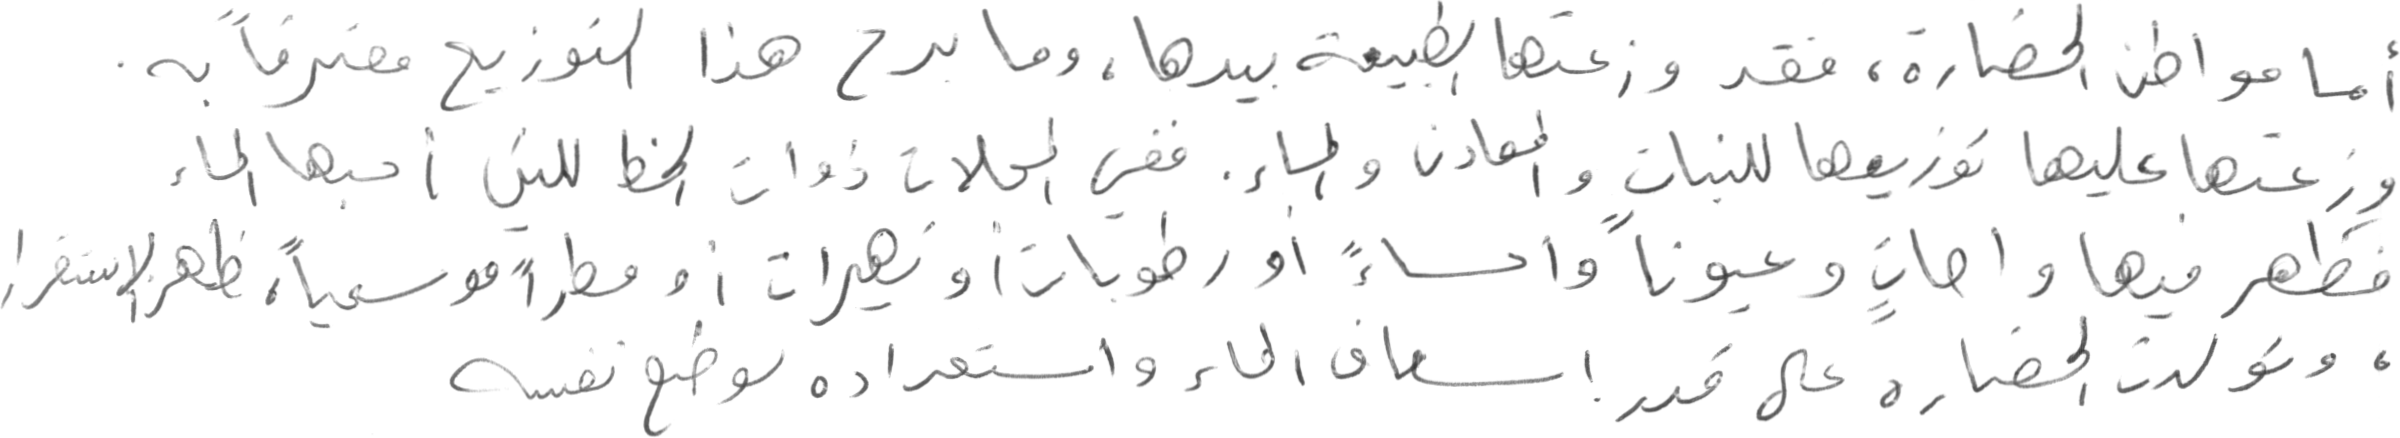 أما مواطن الحضارة، فقد وزعتها الطبيعة بيدها، وما برح هذا التوزيع معترفاً به.
وزعتها عليها توزيعها للنبات والمعادن والماء. ففي المحلات ذوات الحظ للذي أحبها الماء
فظهر فيها واحاتٍ وعيوناً وأحساءً أو رطوبات أو نهيرات أو مطراً موسمياً، ظهر الاستقرار
، وتولدت الحضاره على قدر إسعاف الماء واستعداده لوضع نفسه